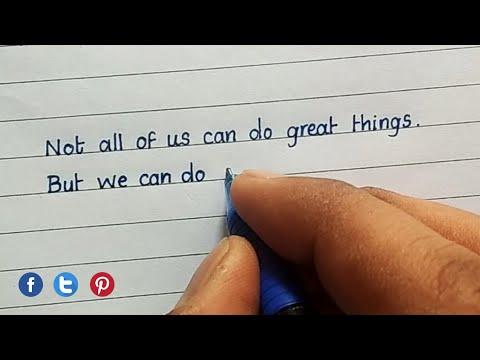 Not all of us can do great things.
But we can do